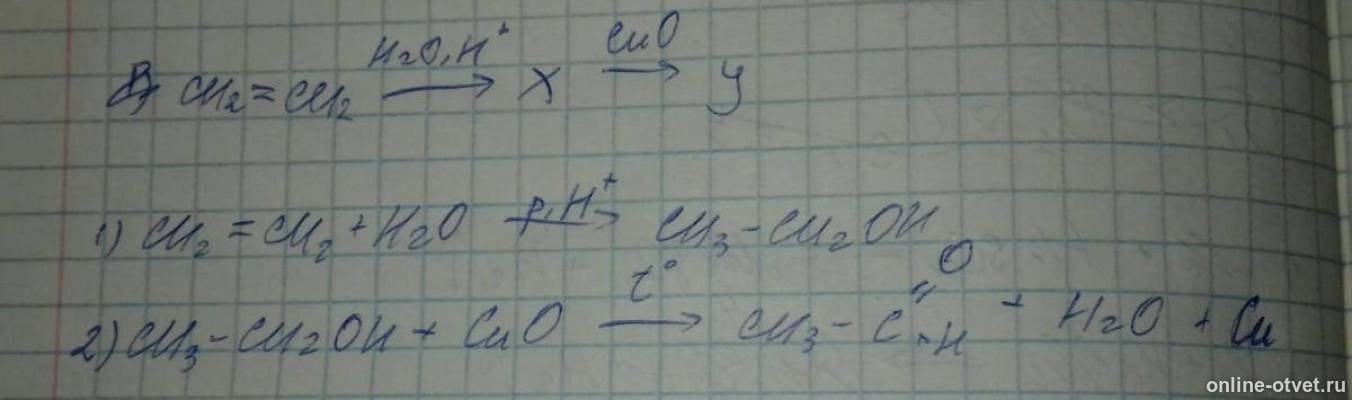 В) CH₂=CH₂ H₂O, H⁺ → X CuO → Y
1) CH₂=CH₂ + H₂O p, H⁺ → CH₃-CH₂OH
2) CH₃-CH₂OH + CuO t° → CH₃-C=O-H + H₂O + Cu
online-otvet.ru